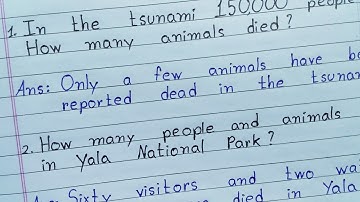 1. In the tsunami 150,000 people
How many animals died?
Ans: Only a few animals have
reported dead in the
2. How many people and animals
in Yala National Park?
Sixty visitors and two
died in Yala